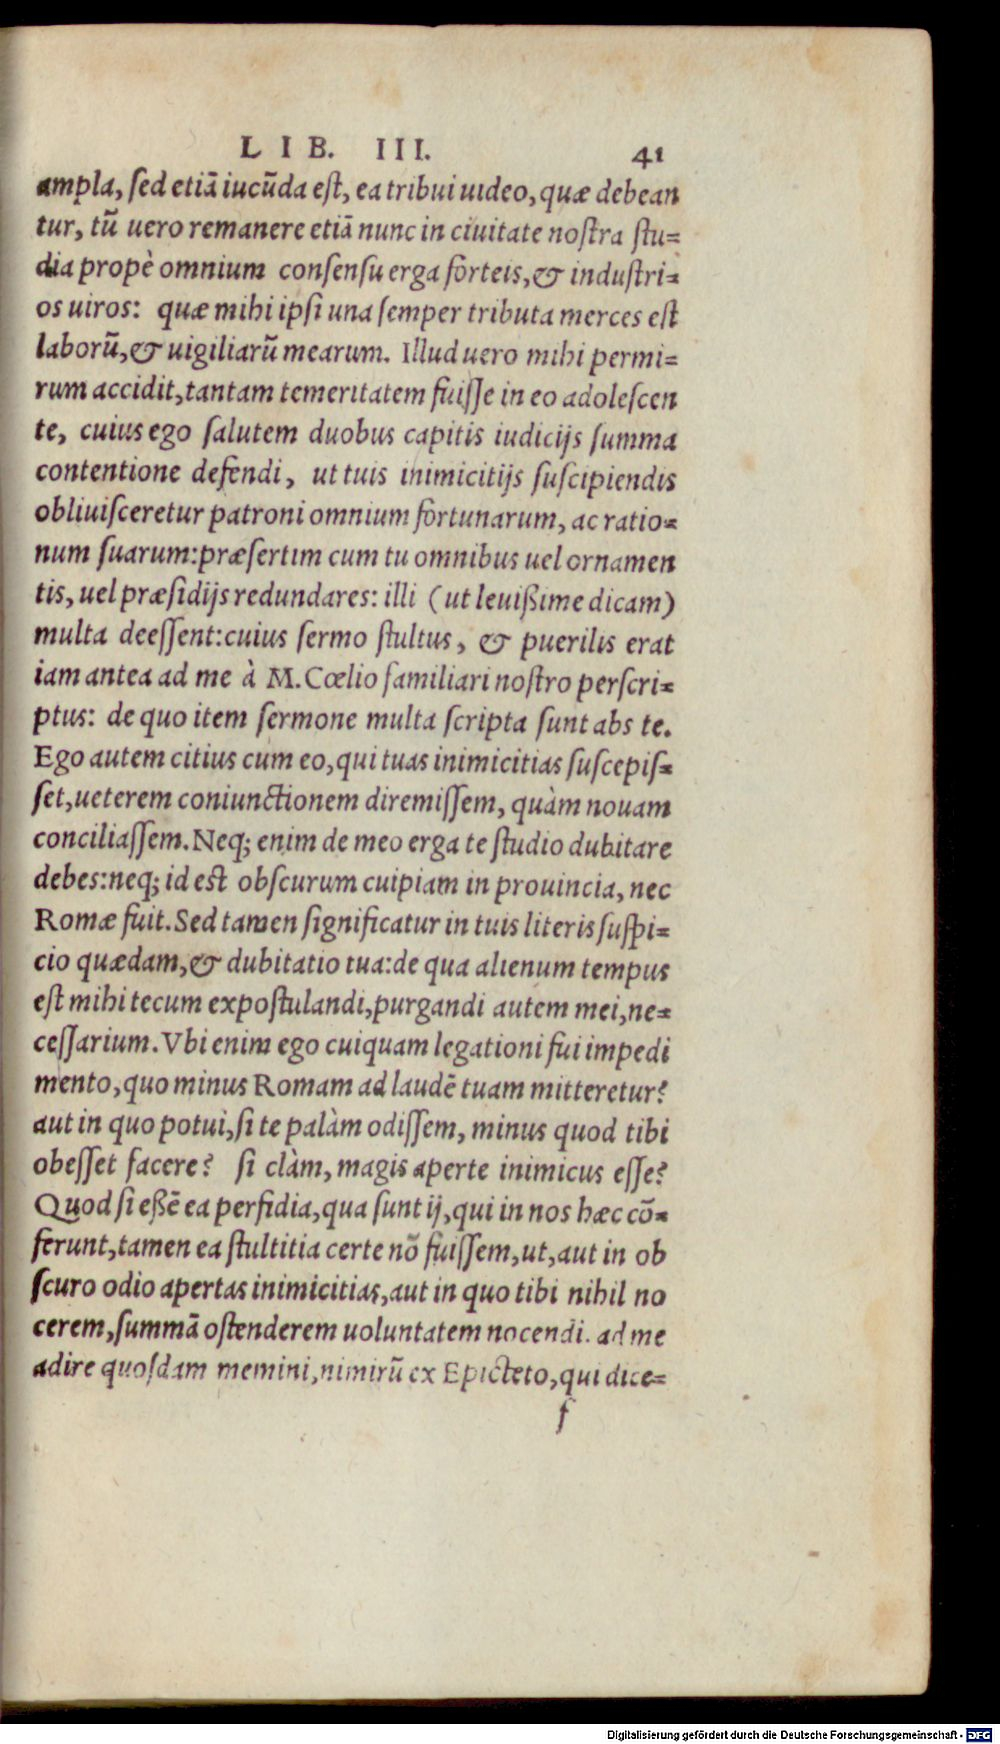 LIB. III. 41
ampla, sed etiā iucūda est, ea tribui uideo, quæ debean
tur, tū uero remanere etiā nunc in ciuitate nostra stu=
dia propè omnium consensu erga forteis, & industri=
os uiros: quæ mihi ipsi una semper tributa merces est
laborū, & uigiliarū mearum. Illud uero mihi permi=
rum accidit, tantam temeritatem fuisse in eo adolescen
te, cuius ego salutem duobus capitis iudicijs summa
contentione defendi, ut tuis inimicitijs suscipiendis
obliuisceretur patroni omnium fortunarum, ac ratio=
num suarum: præsertim cum tu omnibus uel ornamen
tis, uel præsidijs redundares: illi (ut leuißime dicam)
multa deessent: cuius sermo stultus, & puerilis erat
iam antea ad me à M. Cœlio familiari nostro perscri=
ptus: de quo item sermone multa scripta sunt abs te.
Ego autem citius cum eo, qui tuas inimicitias suscepis=
set, ueterem coniunctionem diremissem, quàm nouam
conciliassem. Neq; enim de meo erga te studio dubitare
debes: neq; id est obscurum cuipiam in prouincia, nec
Romæ fuit. Sed tamen significatur in tuis literis suspi=
cio quædam, & dubitatio tua: de qua alienum tempus
est mihi tecum expostulandi, purgandi autem mei, ne=
cessarium. Vbi enim ego cuiquam legationi fui impedi
mento, quo minus Romam ad laudē tuam mitteretur?
aut in quo potui, si te palàm odissem, minus quod tibi
obesset facere? si clàm, magis aperte inimicus esse?
Quod si eßē ea perfidia, qua sunt ij, qui in nos hæc cō=
ferunt, tamen ea stultitia certe nō fuissem, ut, aut in ob
scuro odio apertas inimicitias, aut in quo tibi nihil no
cerem, summā ostenderem uoluntatem nocendi. ad me
adire quosdam memini, nimirū ex Epicteto, qui dice=
f
Digitalisierung gefördert durch die Deutsche Forschungsgemeinschaft - DFG